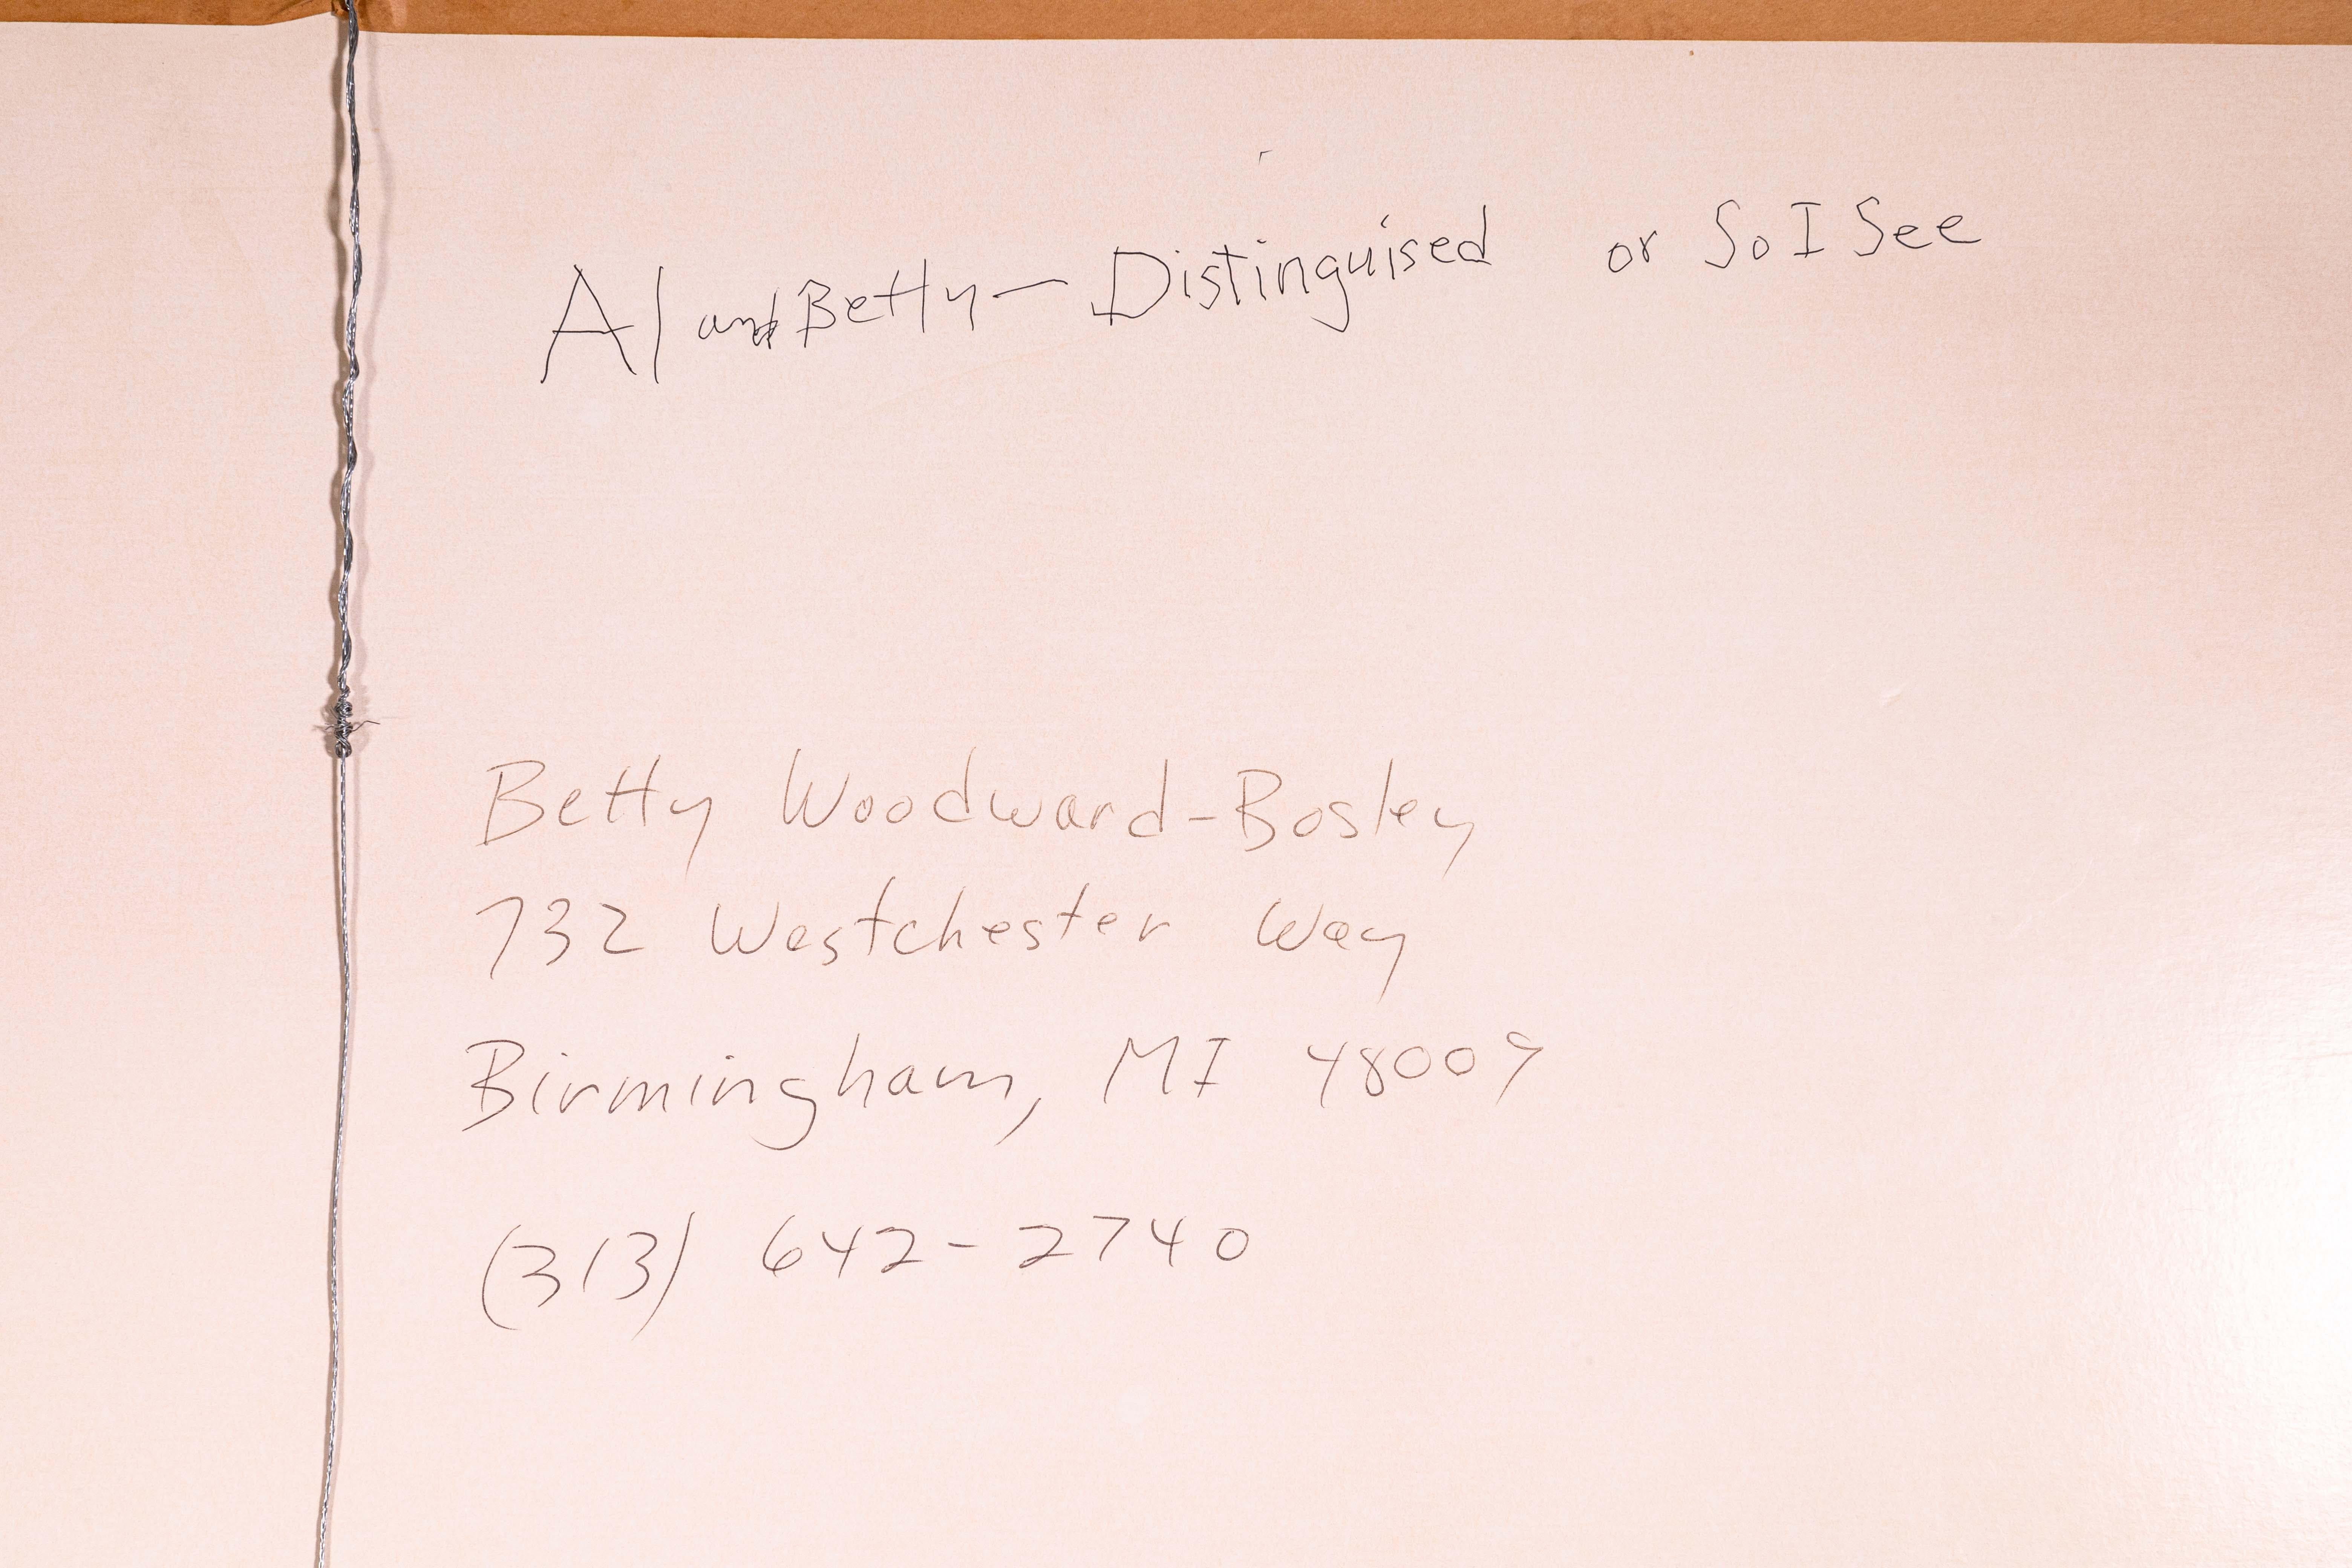 Al and Betty — Distinguised or So I See
Betty Woodward-Bosley
732 Westchester Way
Birmingham, MI 48009
(313) 642-2740